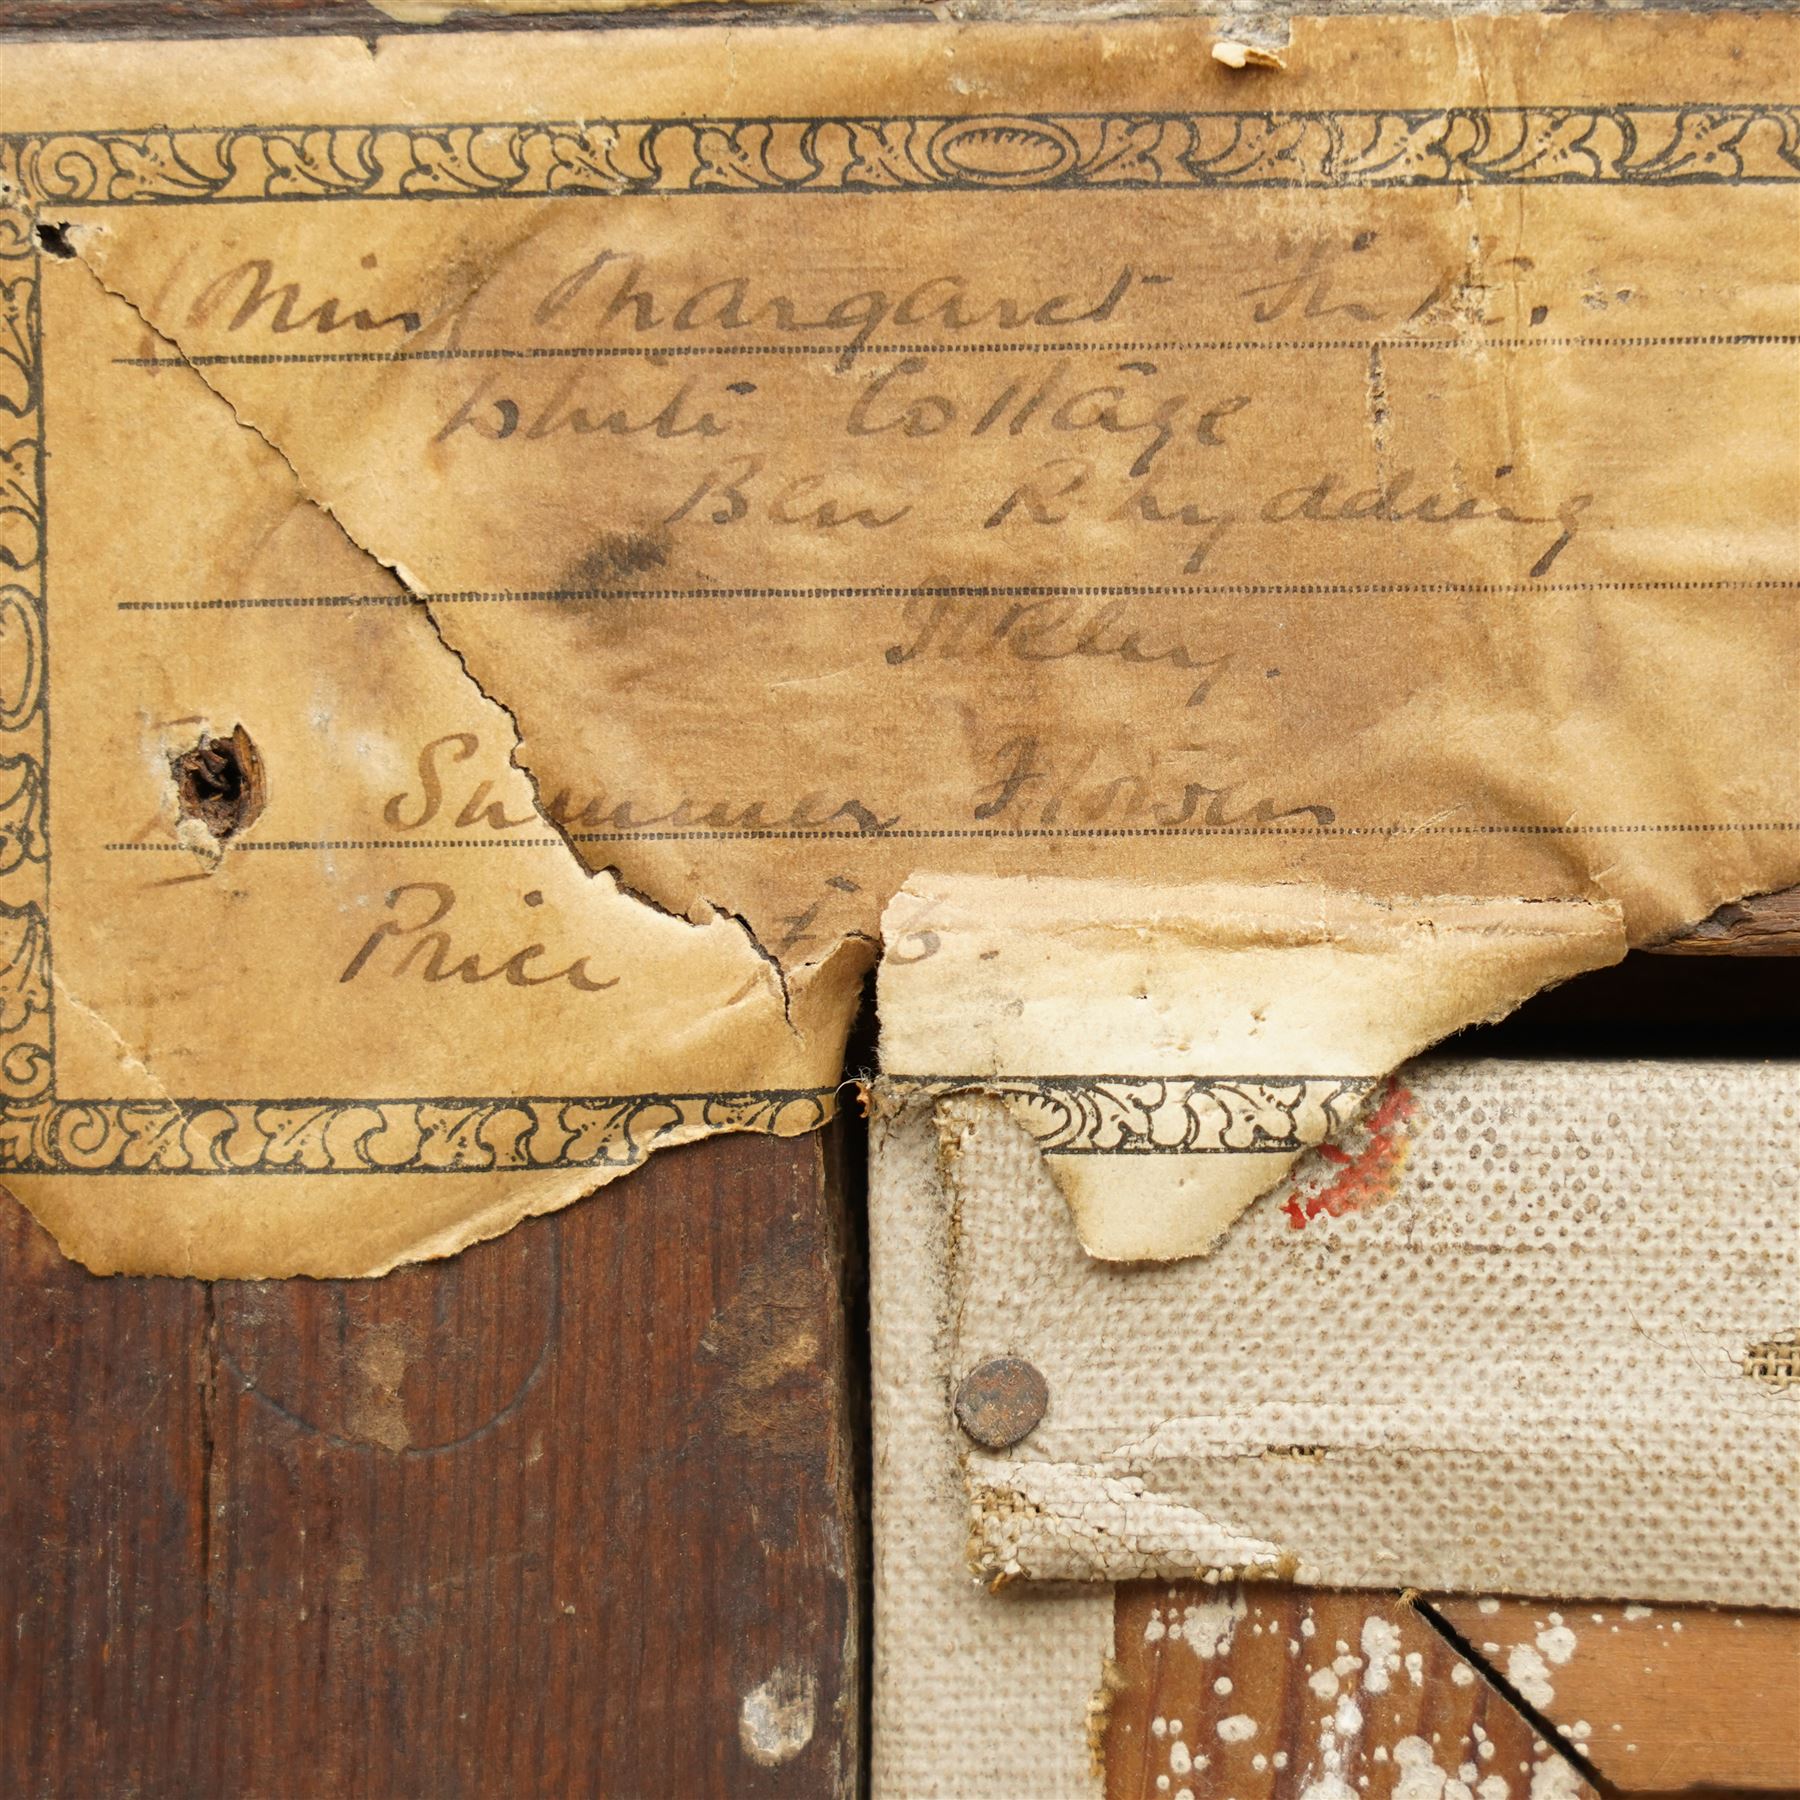 (Miss) Margaret
White Cottage
Ben Rhydding
Ilkley.
Summer Flowers
Price £ 6.